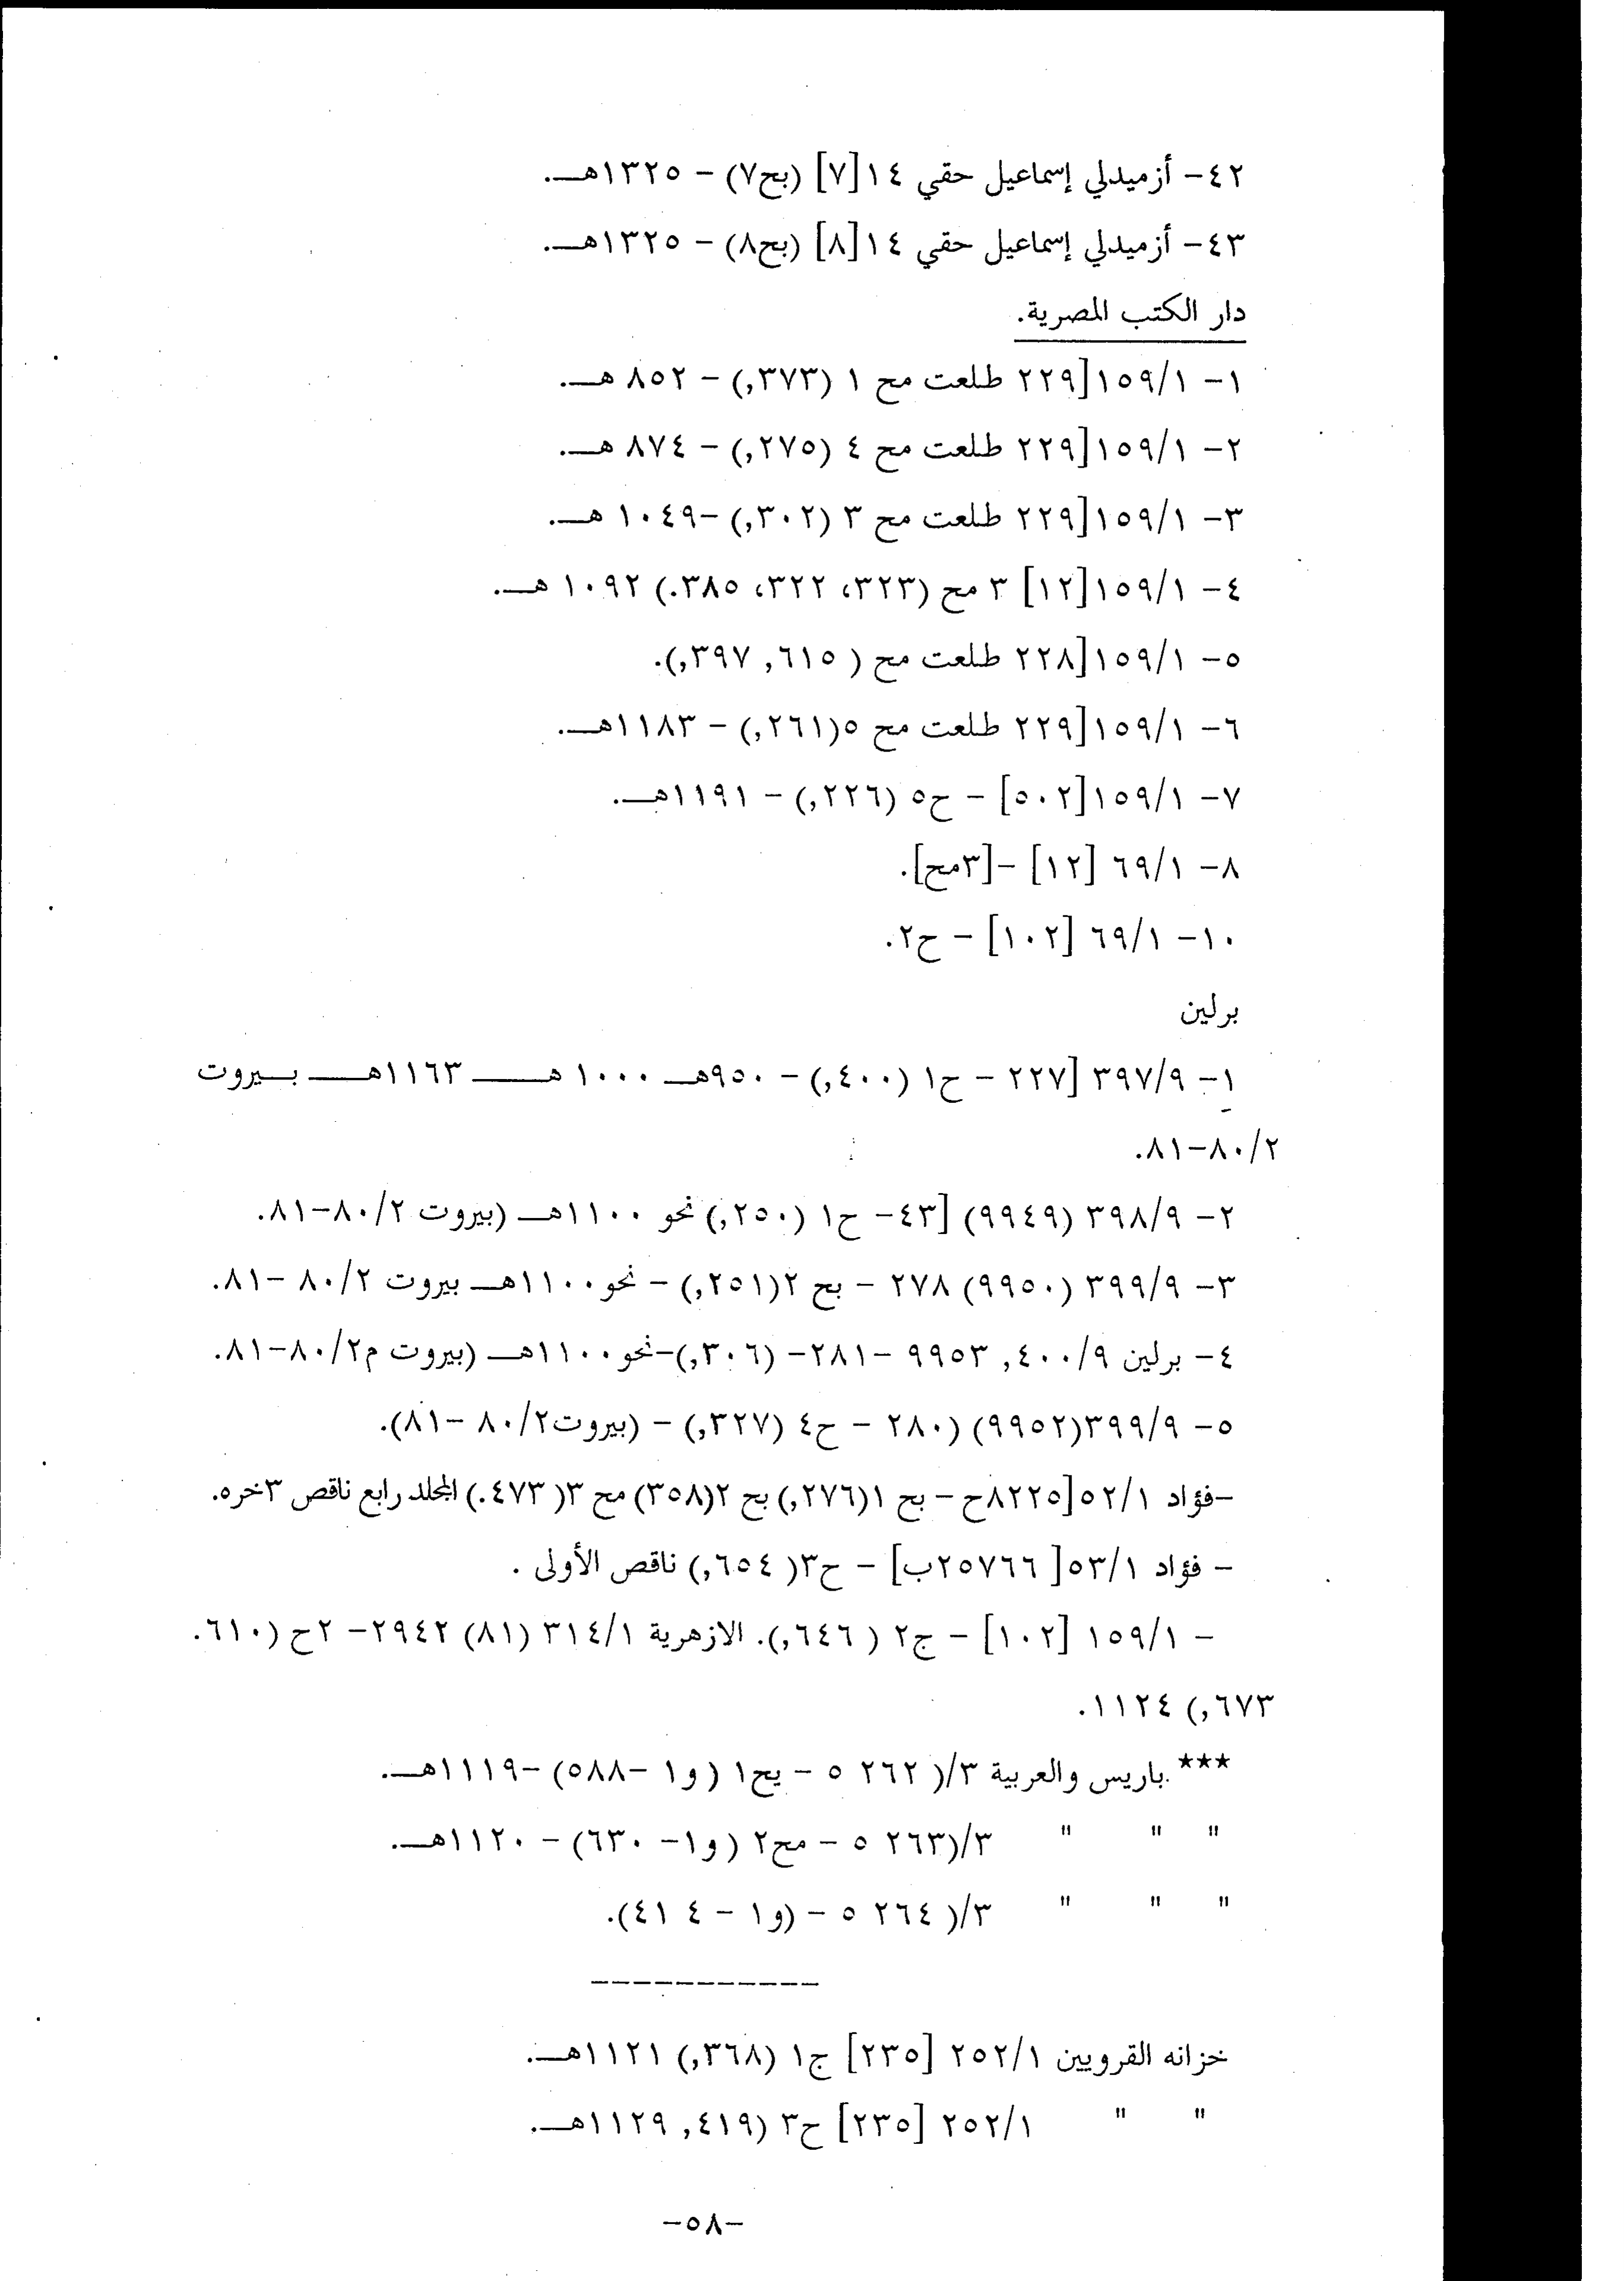 ٤٢- أزميدلي إسماعيل حقي ١٤[٧] (بح٧) - ١٣٢٥هـ.
٤٣- أزميدلي إسماعيل حقي ١٤[٨] (بح٨) - ١٣٢٥هـ.
دار الكتب المصرية.
١- ١٥٩/١[٢٢٩ طلعت مح ١ (٣٧٣,) - ٨٥٢ هـ.
٢- ١٥٩/١[٢٢٩ طلعت مح ٤ (٢٧٥,) - ٨٧٤ هـ.
٣- ١٥٩/١[٢٢٩ طلعت مح ٣ (٣٠٢,) -١٠٤٩ هـ.
٤- ١٥٩/١[١٢] ٣ مح (٣٢٣، ٣٢٢، ٣٨٥.) ١٠٩٢ هـ.
٥- ١٥٩/١[٢٢٨ طلعت مح ( ٦١٥, ٣٩٧,).
٦- ١٥٩/١[٢٢٩ طلعت مح ٥(٢٦١,) - ١١٨٣هـ.
٧- ١٥٩/١[٥٠٢] - ح٥ (٢٢٦,) - ١١٩١هـ.
٨- ٦٩/١ [١٢] -[٣مح].
١٠- ٦٩/١ [١٠٢] - ح٢.
برلين
١- ٣٩٧/٩ [٢٢٧ - ح١ (٤٠٠,) - ٩٥٠هـ ١٠٠٠ هـ ١١٦٣هـ بيروت
٨٠/٢-٨١.
٢- ٣٩٨/٩ (٩٩٤٩) [٤٣- ح١ (٢٥٠,) نحو ١١٠٠هـ (بيروت ٨٠/٢-٨١.
٣- ٣٩٩/٩ (٩٩٥٠) ٢٧٨ - بح ٢(٢٥١,) - نحو١١٠٠هـ بيروت ٨٠/٢ -٨١.
٤- برلين ٤٠٠/٩, ٩٩٥٣ -٢٨١- (٣٠٦,)-نحو١١٠٠هـ (بيروت م٨٠/٢-٨١.
٥- ٣٩٩/٩(٩٩٥٢) (٢٨٠ - ح٤ (٣٢٧,) - (بيروت٨٠/٢ -٨١).
-فؤاد ٥٢/١[٨٢٢٥ح - بح ١(٢٧٦,) بح ٢(٣٥٨) مح ٣( ٤٧٣.) المجلد رابع ناقص ٣خره.
- فؤاد ٥٣/١[ ٢٥٧٦٦ب] - ح٣( ٦٥٤,) ناقص الأولى .
- ١٥٩/١ [١٠٢] - ج٢ ( ٦٤٦,). الازهرية ٣١٤/١ (٨١) ٢٩٤٢- ٢ح (٦١٠.
٦٧٣,) ١١٢٤.
*** باريس والعربية ٣/( ٢٦٢ ٥ - يح١ ( و١ -٥٨٨) -١١١٩هـ.
" " " ٣/(٢٦٣ ٥ - مح٢ ( و١- ٦٣٠) - ١١٢٠هـ.
" " " ٣/( ٢٦٤ ٥ - (و١ - ٤ ٤١).
-----------
خزانه القرويين ٢٥٢/١ [٢٣٥] ج١ (٣٦٨,) ١١٢١هـ.
" " ٢٥٢/١ [٢٣٥] ح٣ (٤١٩, ١١٢٩هـ.
-٥٨-